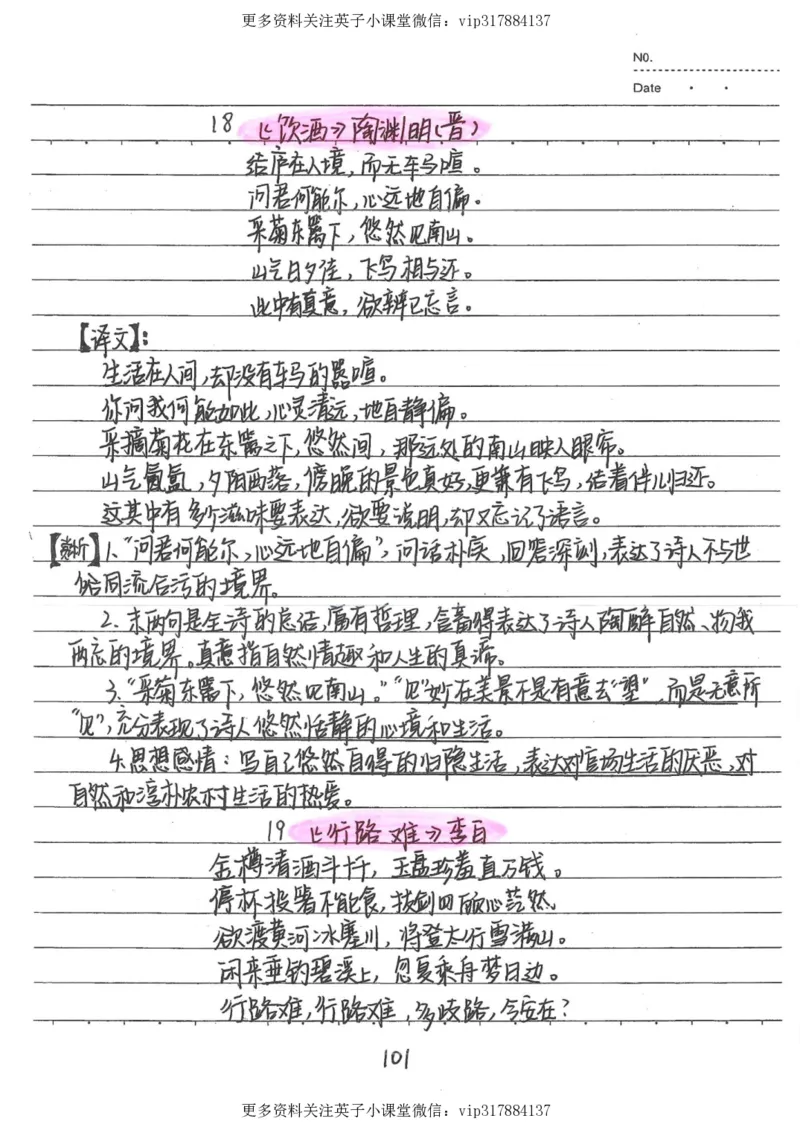 更多资料关注英子小课堂微信：vip317884137
NO.
Date
18 《饮酒》陶渊明（晋）
结庐在人境，而无车马喧。
问君何能尔，心远地自偏。
采菊东篱下，悠然见南山。
山气日夕佳，飞鸟相与还。
此中有真意，欲辨已忘言。
【译文】：
生活在人间，却没有车马的嚣喧。
你问我何能如此，心灵清远，地自静偏。
采摘菊花在东篱之下，悠然间，那远处的南山映入眼帘。
山气氤氲，夕阳西落，傍晚的景色真好，更兼有飞鸟，结着伴儿归还。
这其中有多少滋味要表达，欲要说明，却又忘记了语言。
【赏析】1、“问君何能尔，心远地自偏”，问话朴实，回答深刻，表达了诗人不与世
俗同流合污的境界。
2、末两句是全诗的总结，富有哲理，含蓄得表达了诗人陶醉自然、物我
两忘的境界。真意指自然情趣和人生的真谛。
3、“采菊东篱下，悠然见南山。”“见”妙在美景不是有意去“望”，而是无意所
“见”，充分表现了诗人悠然恬静的心境和生活。
4、思想感情：写自己悠然自得的归隐生活，表达对官场生活的厌恶，对
自然和淳朴农村生活的热爱。
19 《行路难》李白
金樽清酒斗十千，玉盘珍羞直万钱。
停杯投箸不能食，拔剑四顾心茫然。
欲渡黄河冰塞川，将登太行雪满山。
闲来垂钓碧溪上，忽复乘舟梦日边。
行路难，行路难，多歧路，今安在？
101
更多资料关注英子小课堂微信：vip317884137